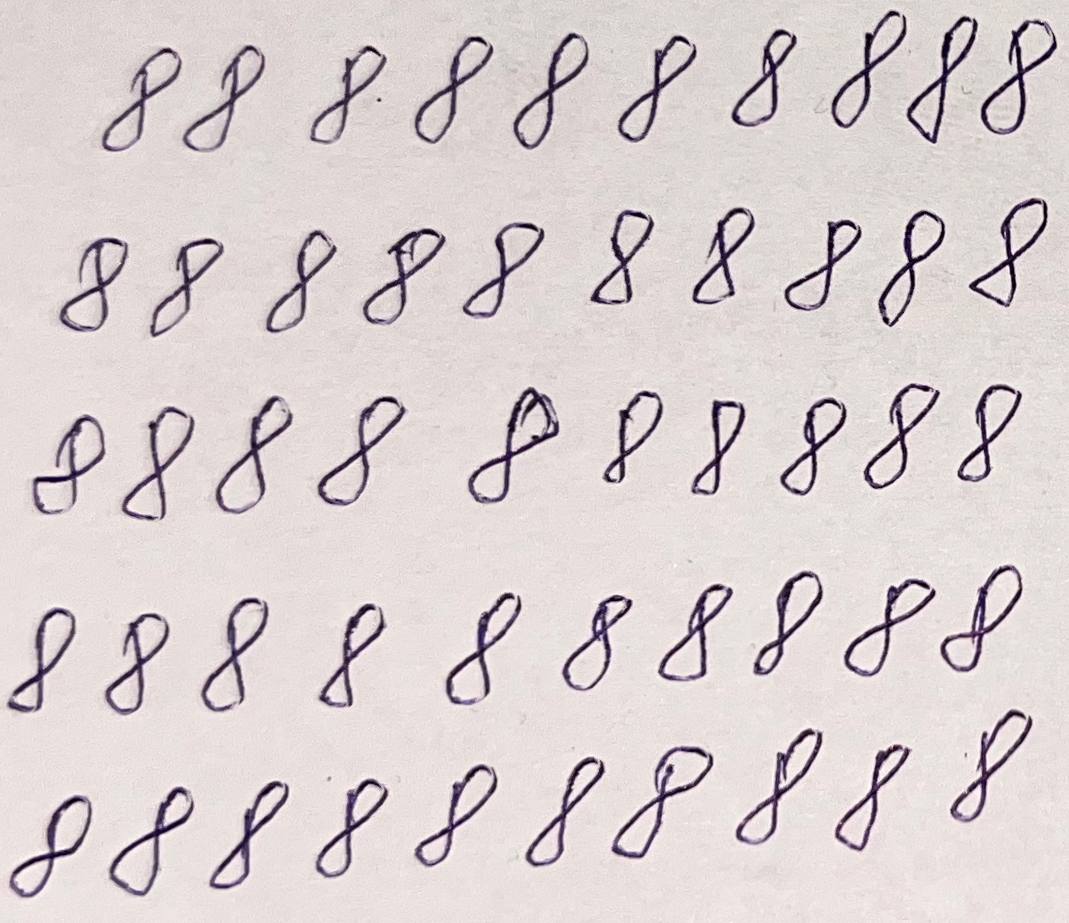 8 8 8 8 8 8 8 8 8 8
8 8 8 8 8 8 8 8 8 8
8 8 8 8 8 8 8 8 8 8
8 8 8 8 8 8 8 8 8 8
8 8 8 8 8 8 8 8 8 8